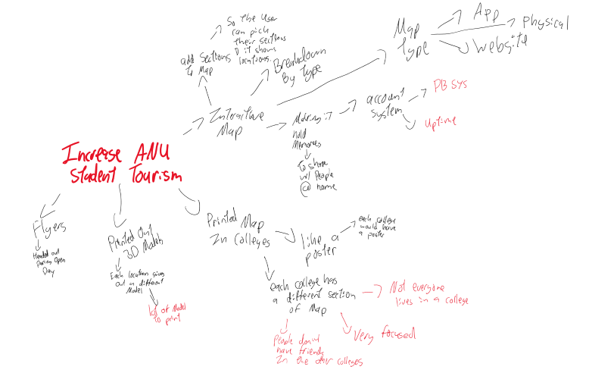 So the Use
can pick
their sections
& it shows
locations
add Sections
to Map
Breakdown
By type
Map
Type
App
Physical
Website
Map
Making it
hold
Memories
To share
w/ People
@ home
account
system
PB sys
Uptime
Increase ANU
Student Tourism
Flyers
Handed out
During Open
Day
Printed Out
3D Models
Each location giving
out a different
Model
lot of Model
to print
Printed Map
In Colleges
like a
poster
each college
would have
a poster
each college has
a different section
of Map
Not everyone
lives in a college
Very focused
People doesnt
have friends
In the other colleges